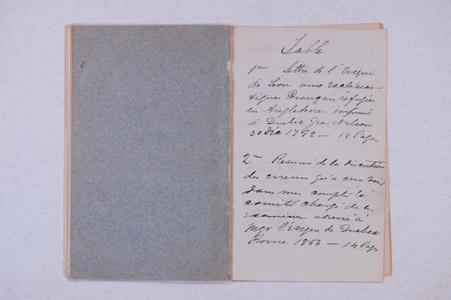 Table
1er Lettre de l'Eveque
de Leon aux Ecclésias-
tiques Français refugiés
en Angleterre imprimé
à Quebec Jno Neilson
30 Déc 1792 — 18 Pages
2me Resumé de la discution
des erreurs qu'a
dans mes compte le
comité chargé de les
examiner adressé à
Mgr l'Evêque de Quebec
Rome 1853 — 14 Pages